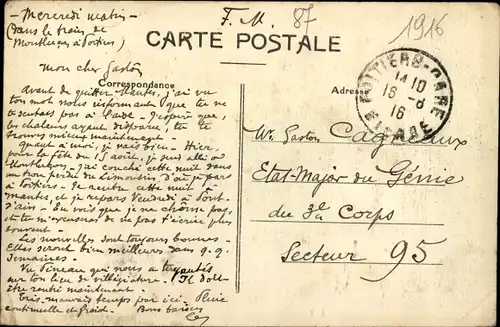 - Mercredi matin -
(dans le train de
Montluçon à Poitiers)
F. M. 87
1916
CARTE POSTALE
Correspondance
Adresse
POITIERS-GARE
14 10
16 - 8
16
VIENNE
Mon cher Gaston
Avant de quitter Nantes, j'ai vu
ton mot nous informant que tu ne
te sentais pas à l'aise. J'espère que,
les chaleurs ayant disparu, tu te
trouves mieux maintenant.
Quant à moi, je vais bien. Hier,
pour la fête du 15 août, je suis allé à
Montluçon. J'ai couché cette nuit dans
un trou perdu du Limousin d'où je pars
à Poitiers. Je rentre cette nuit à
Nantes, et je repars Vendredi à Pont-
. Tu vois que je ne chôme pas,
et tu m'excuseras de ne pas t'écrire plus
souvent.
Les nouvelles sont toujours bonnes.
Elles seront bien meilleures dans q.q.
semaines.
Vu Pineau qui nous a
sur ton lieu de villégiature. Il doit
être rentré maintenant.
Très mauvais temps par ici. Pluie
continuelle et froid. Bons baisers
Mr Gaston
Etat-Major du Génie
du 3e Corps
Secteur 95